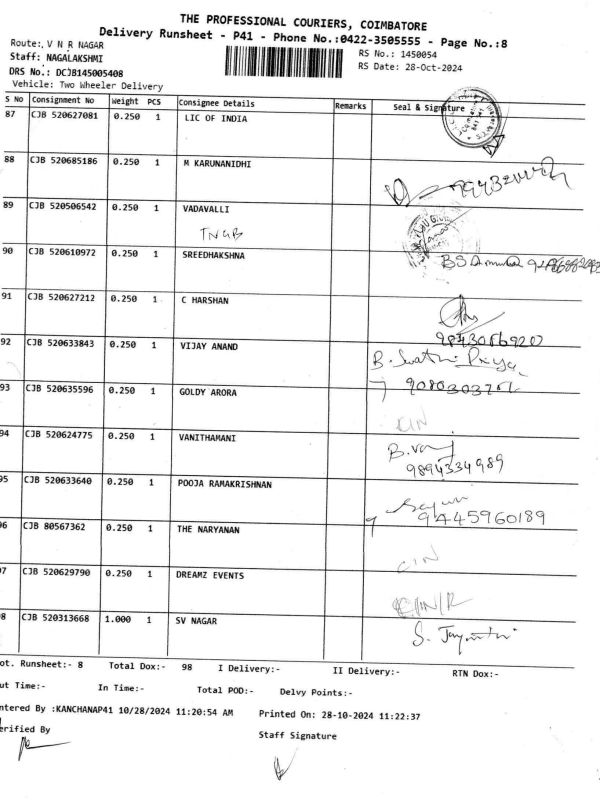 THE PROFESSIONAL COURIERS, COIMBATORE
Delivery Runsheet - P41 - Phone No.:0422-3505555 - Page No.:8
Route:, V N R NAGAR
RS No.: 1450054
Staff: NAGALAKSHMI
RS Date: 28-Oct-2024
DRS No.: DCJB145005408
Vehicle: Two Wheeler Delivery
S No Consignment No Weight PCS Consignee Details Remarks Seal & Signature
87 CJB 520627081 0.250 1 LIC OF INDIA
88 CJB 520685186 0.250 1 M KARUNANIDHI
89 CJB 520506542 0.250 1 VADAVALLI
TNGB
90 CJB 520610972 0.250 1 SREEDHAKSHNA
91 CJB 520627212 0.250 1 C HARSHAN
9843086920
92 CJB 520633843 0.250 1 VIJAY ANAND B. Swathi Priya
93 CJB 520635596 0.250 1 GOLDY ARORA
CIN
94 CJB 520624775 0.250 1 VANITHAMANI
9894334989
95 CJB 520633640 0.250 1 POOJA RAMAKRISHNAN
9445960189
96 CJB 80567362 0.250 1 THE NARYANAN
CIN
97 CJB 520629790 0.250 1 DREAMZ EVENTS
CIN/R
98 CJB 520313668 1.000 1 SV NAGAR
ot. Runsheet:- 8 Total Dox:- 98 I Delivery:- II Delivery:- RTN Dox:-
ut Time:- In Time:- Total POD:- Delvy Points:-
ntered By :KANCHANAP41 10/28/2024 11:20:54 AM Printed On: 28-10-2024 11:22:37
erified By
Staff Signature